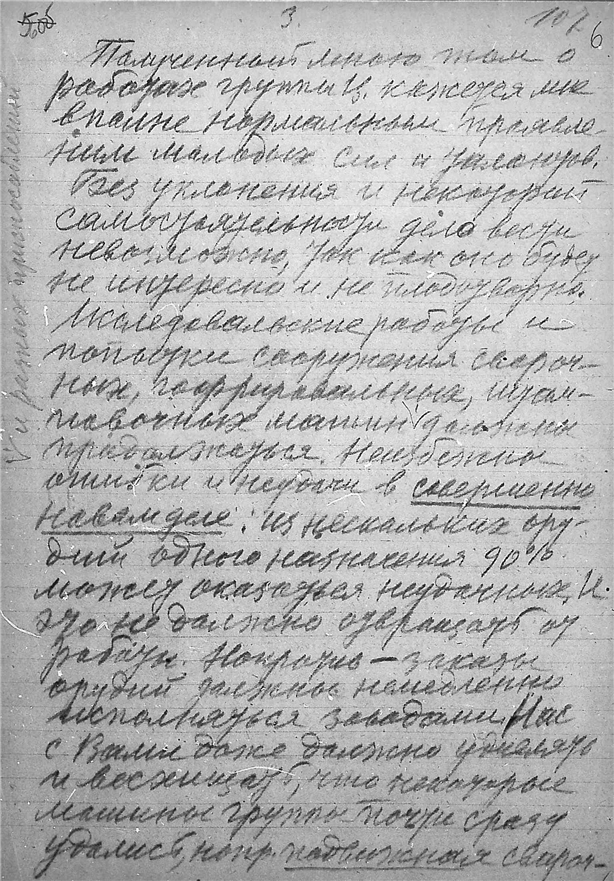 3.
6
Полученный мною том о
работах группы Ц. кажется мне
вполне нормальным проявле-
нием молодых сил и талантов.
Без уклонения и некоторой
самостоятельности дело вести
невозможно, так как оно будет
не интересно и не плодотворно.
Исследовательские работы и
попытки сооружения свароч-
ных, гофрировальных, штам-
повочных машин √ должны
продолжаться. Неизбежны
ошибки и неудачи в совершенно
новом деле: из нескольких ору-
дий одного назначения 90%
может оказаться неудачных. И
это не должно отвращать от
работы. Напротив – заказы
орудий должны немедленно
исполняться заводами. Нас
с Вами даже должно удивлять
и восхищать, что некоторые
машины группы почти сразу
удались, напр. подвижная свароч-
√ и разных приспособлений